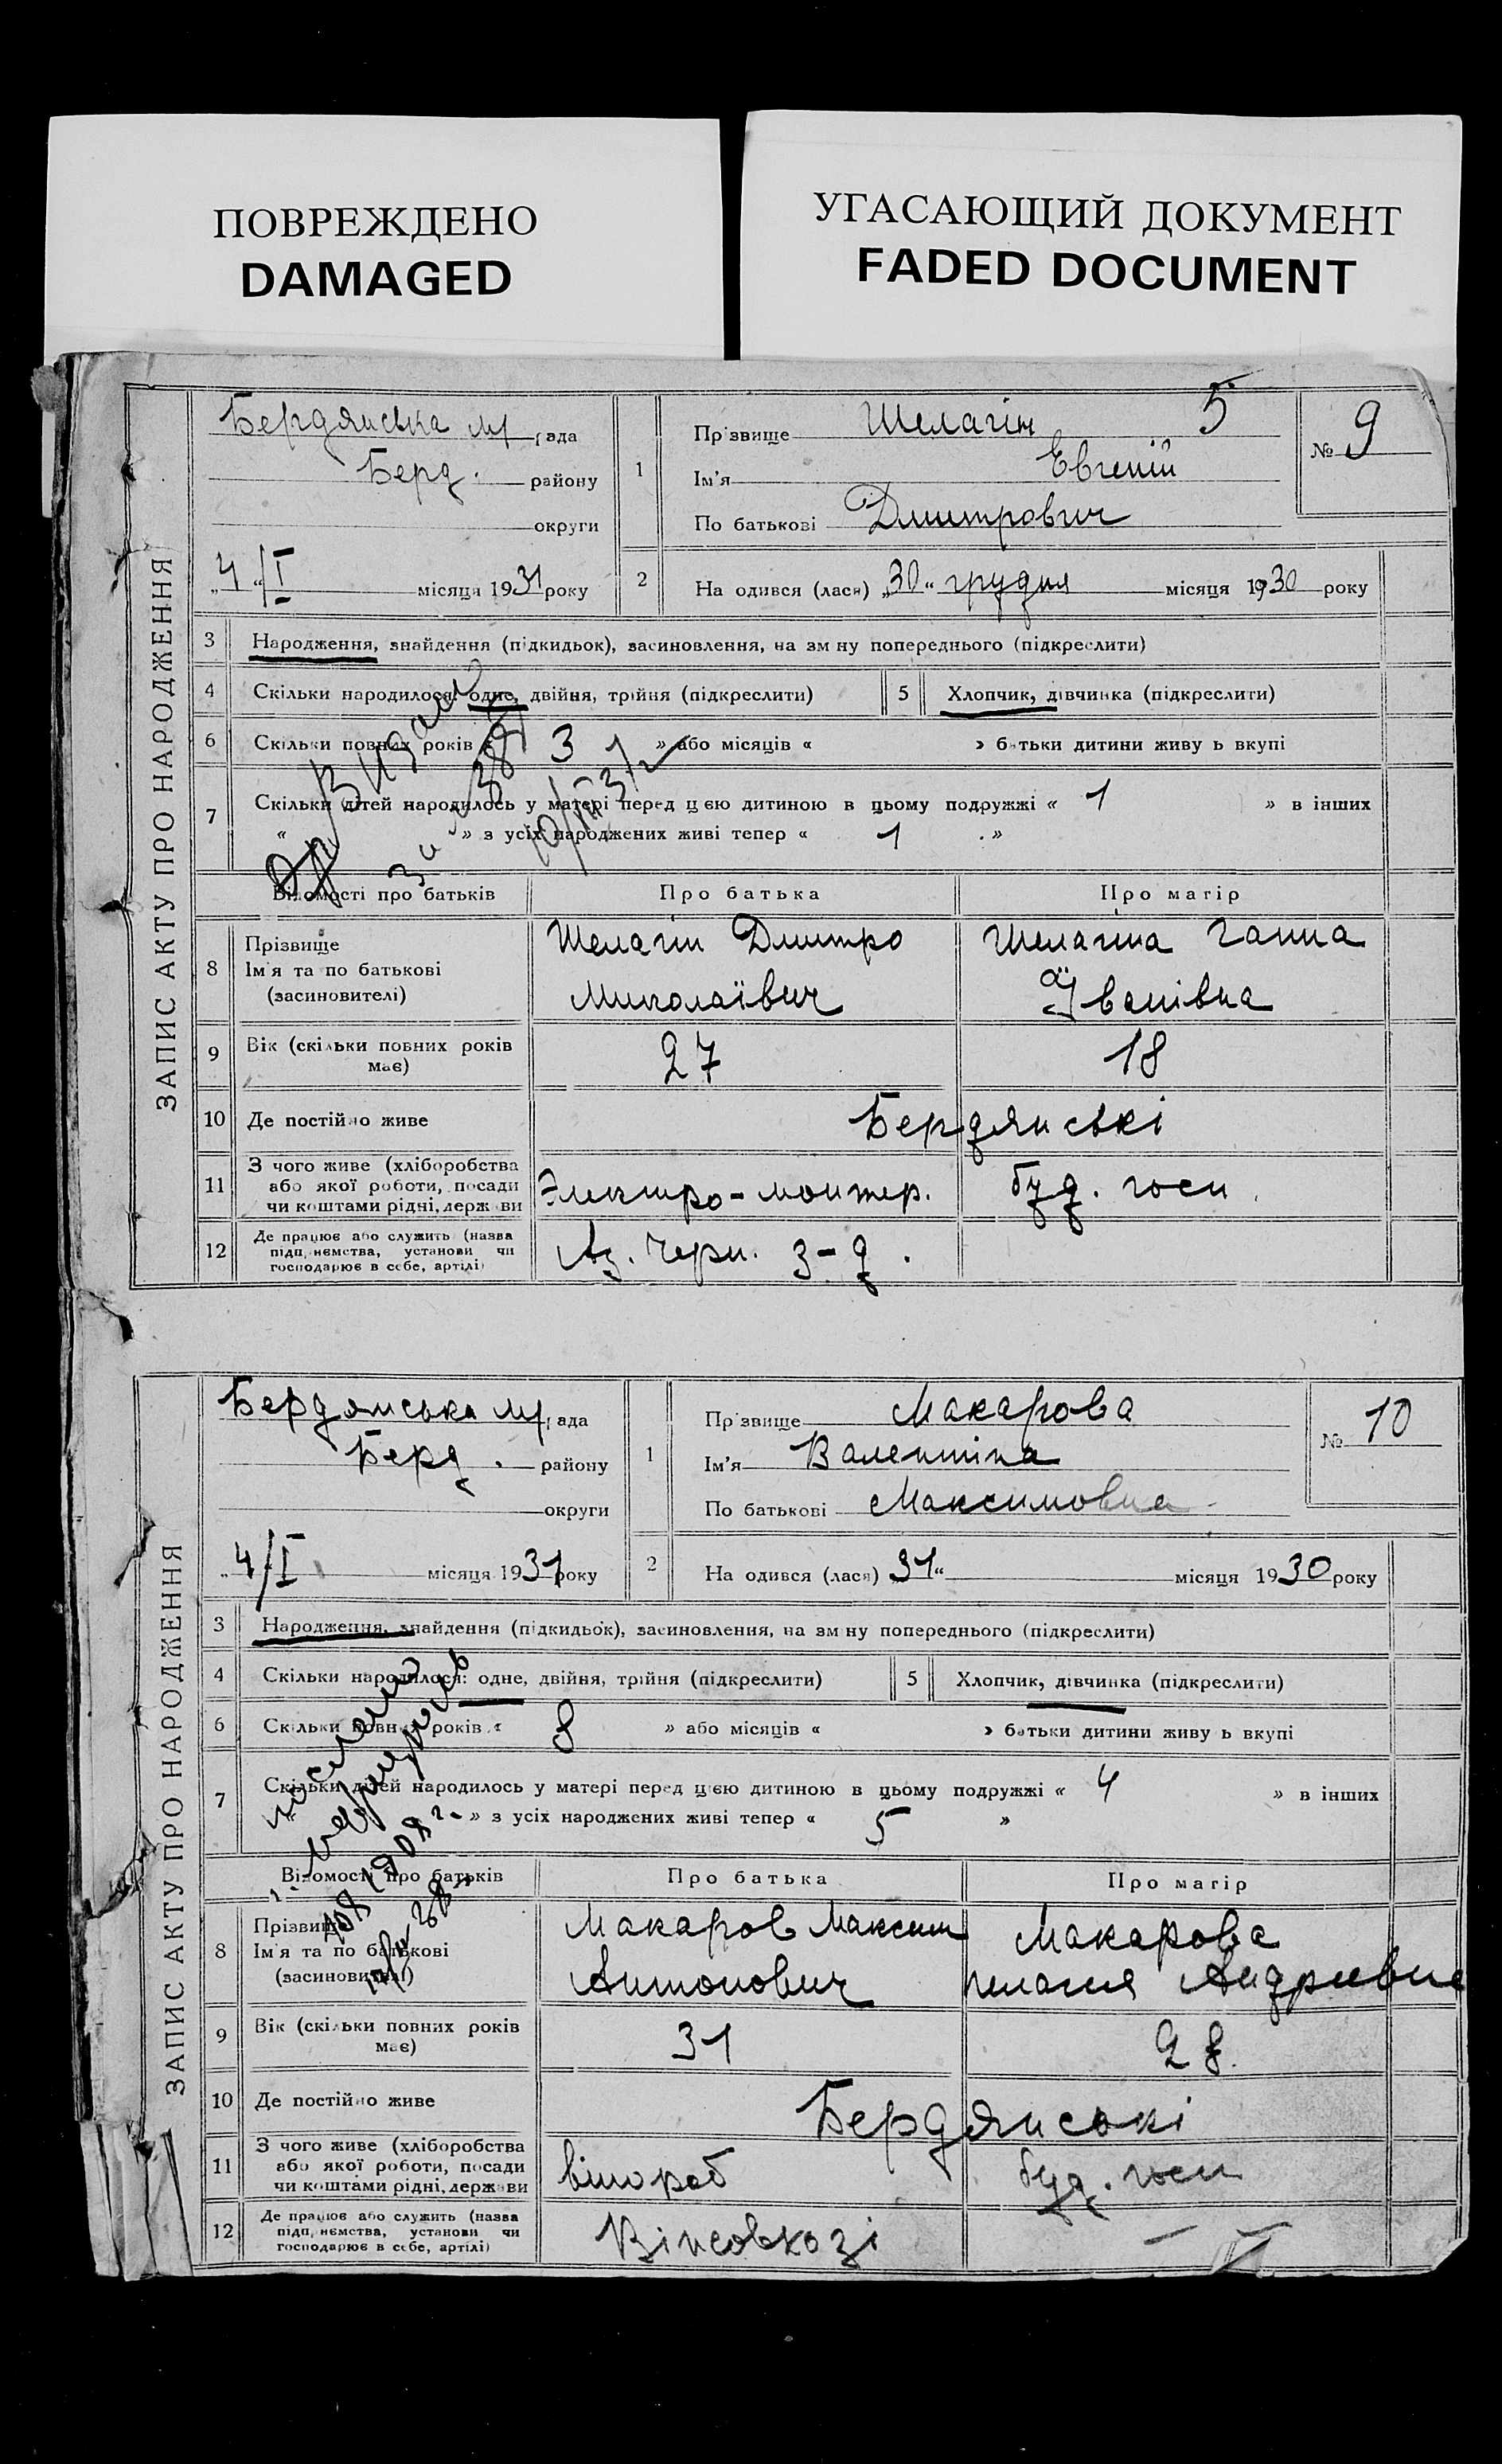 ПОВРЕЖДЕНО
DAMAGED
УГАСАЮЩИЙ ДОКУМЕНТ
FADED DOCUMENT
ЗАПИС АКТУ ПРО НАРОДЖЕННЯ
Бердянська м/рада
Берд. району
округи
„4“/I місяця 1931 року
1
Прізвище Шелагін 5
Ім'я Евгеній
По батькові Дмитрович
№ 9
2
На одився (лася) „30“ грудня місяця 1930 року
3 Народження, знайдення (підкидьок), засиновлення, на зм ну попереднього (підкреслити)
4 Скільки народилося: одне, двійня, трійня (підкреслити)
5 Хлопчик, дівчинка (підкреслити)
6 Скільки повних років « 3 » або місяців « » батьки дитини живу ь вкупі
7 Скільки дітей народилось у матері перед цією дитиною в цьому подружжі « 1 » в інших
« » з усіх народжених живі тепер « 1 »
Відомості про батьків Про батька Про матір
8 Прізвище
Ім'я та по батькові
(засиновителі)
Шелагін Дмитро
Миколаївич
Шелагіна Ганна
Іванівна
9 Вік (скільки повних років має) 27 18
10 Де постійно живе Бердянські
11 З чого живе (хліборобства
або якої роботи, посади
чи коштами рідні, держави
Электро-монтер. буд. госп.
12 Де працює або служить (назва
підп, нємства, установи чи
господарює в себе, артілі)
Аз. Черн. з-д.
ЗАПИС АКТУ ПРО НАРОДЖЕННЯ
Бердянська м/рада
Берд. району
округи
„4/I місяця 1931 року
1
Прізвище Макарова
Ім'я Валентіна
По батькові Максимовна
№ 10
2
На одився (лася) „31“ місяця 1930 року
3 Народження, знайдення (підкидьок), засиновлення, на зм ну попереднього (підкреслити)
4 Скільки народилося: одне, двійня, трійня (підкреслити)
5 Хлопчик, дівчинка (підкреслити)
6 Скільки повних років « 8 » або місяців « » батьки дитини живу ь вкупі
7 Скільки дітей народилось у матері перед цією дитиною в цьому подружжі « 4 » в інших
« » з усіх народжених живі тепер « 5 »
Відомості про батьків Про батька Про матір
8 Прізвище
Ім'я та по батькові
(засиновителі)
Макаров Максим
Антонович
Макарова
Пелагея Андриевна
9 Вік (скільки повних років має) 31 28.
10 Де постійно живе Бердянські
11 З чого живе (хліборобства
або якої роботи, посади
чи коштами рідні, держави
вінороб буд. госп
12 Де працює або служить (назва
підп, нємства, установи чи
господарює в себе, артілі)